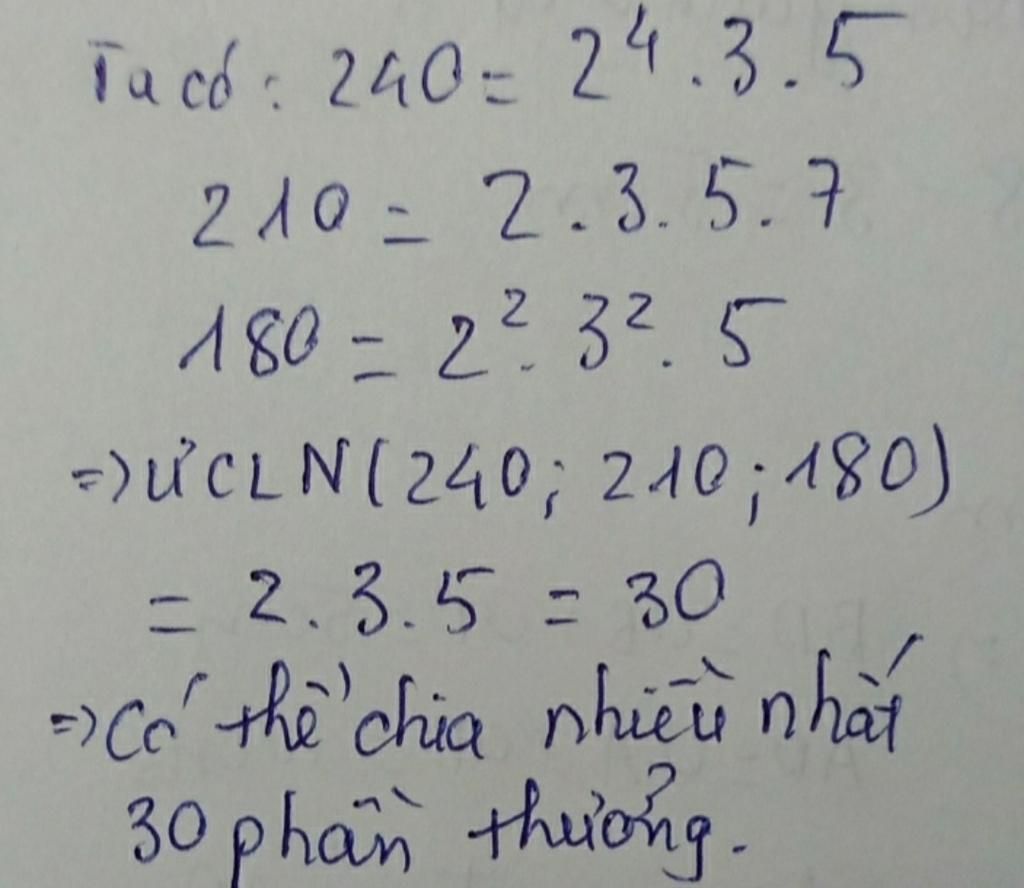 Ta có: 240 = 2⁴.3.5
210 = 2.3.5.7
180 = 2².3².5
=> ƯCLN(240; 210; 180)
= 2.3.5 = 30
=> Có thể chia nhiều nhất
30 phần thưởng.